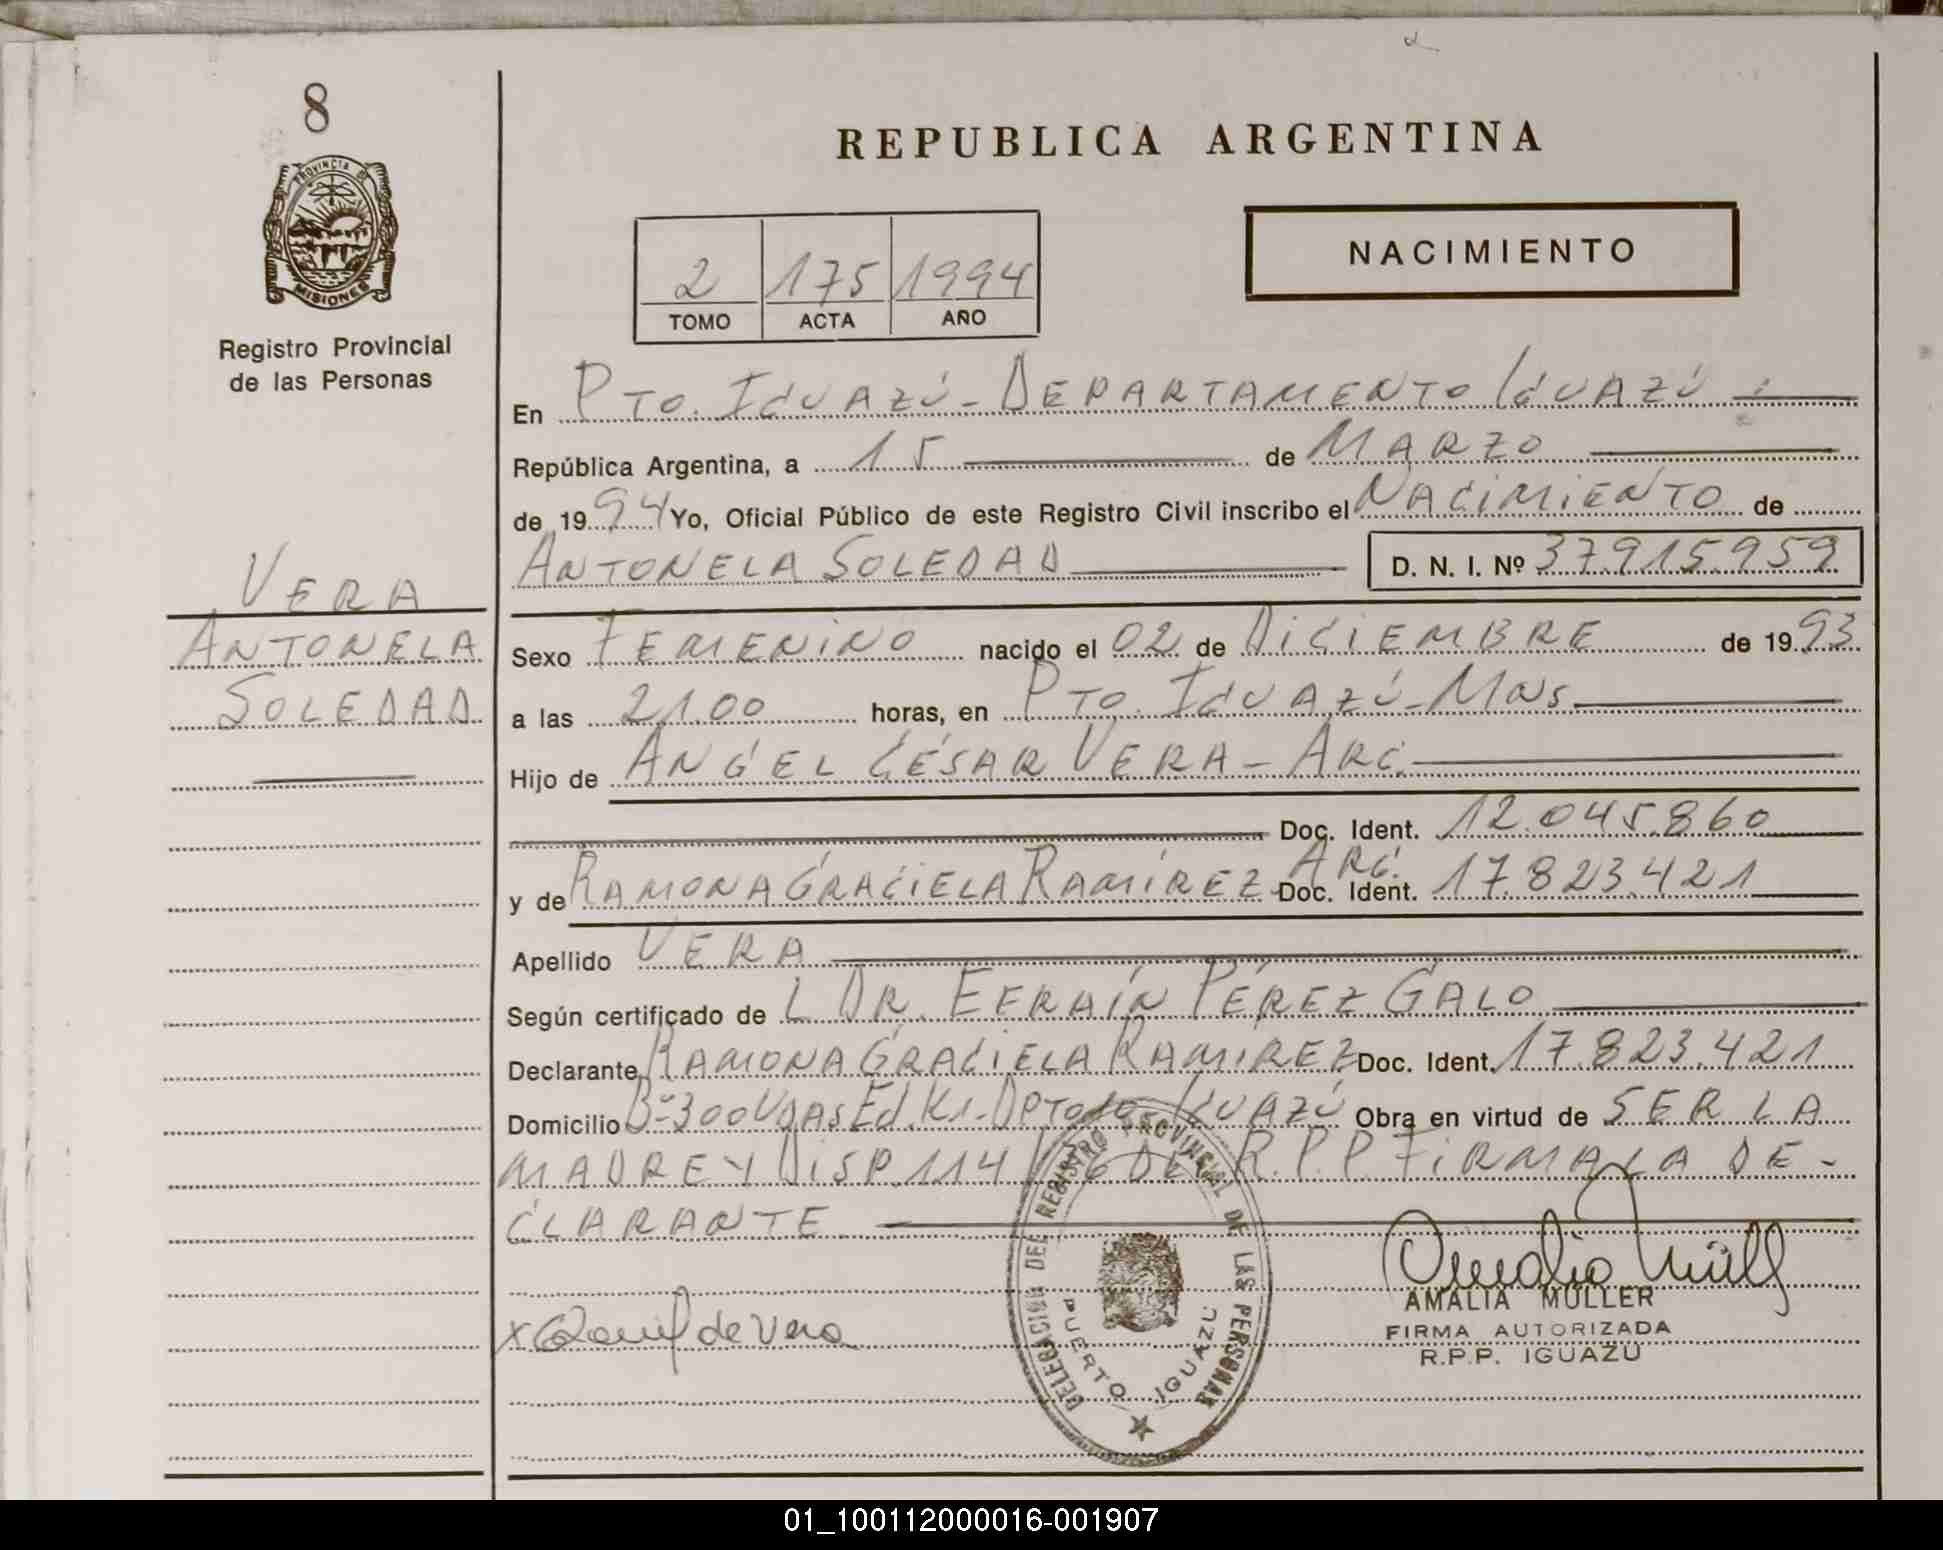 8
PROVINCIA DE
MISIONES
Registro Provincial
de las Personas
VERA
ANTONELA
SOLEDAD
REPUBLICA ARGENTINA
NACIMIENTO
2 175 1994
TOMO ACTA AÑO
En PTO. IGUAZÚ - DEPARTAMENTO IGUAZÚ
República Argentina, a 15 de MARZO
de 1994 Yo, Oficial Público de este Registro Civil inscribo el NACIMIENTO de
ANTONELA SOLEDAD D. N. I. Nº 37915959
Sexo FEMENINO nacido el 02 de DICIEMBRE de 1993
a las 21.00 horas, en PTO. IGUAZÚ - MNS
Hijo de ANGEL CÉSAR VERA - ARG.
Doc. Ident. 12.045.860
y de RAMONA GRACIELA RAMÍREZ - ARG. Doc. Ident. 17.823.421
Apellido VERA
Según certificado de L DR. EFRAÍN PÉREZ GALO
Declarante RAMONA GRACIELA RAMIREZ Doc. Ident. 17.823.421
Domicilio Bº 300 VDAS Ed. K1 - DPTO IGUAZÚ Obra en virtud de SER LA
MADRE Y DISP. 114 R.P.P. FIRMA LA DE-
CLARANTE
x de Vera
DELEGACION DEL REGISTRO PROVINCIAL DE LAS PERSONAS
PUERTO IGUAZU
Amalia Müll
AMALIA MULLER
FIRMA AUTORIZADA
R.P.P. IGUAZU
01_100112000016-001907